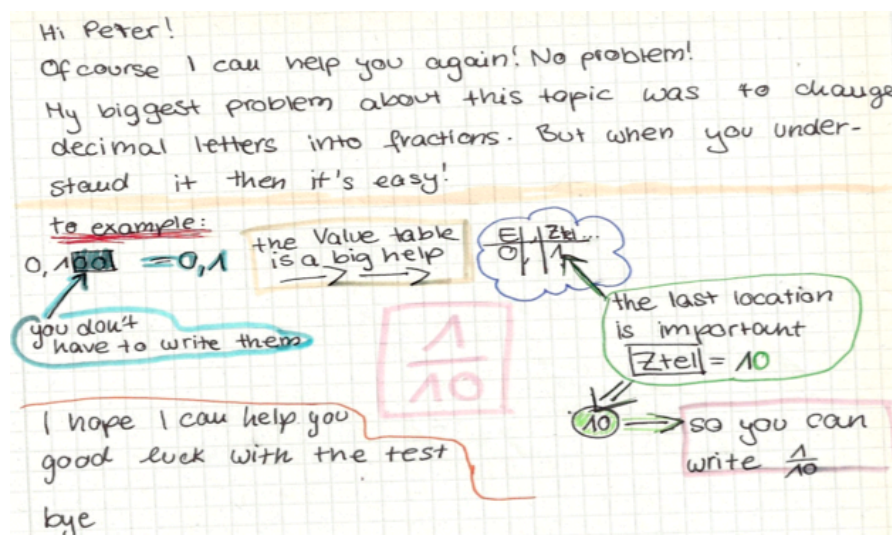 Hi Peter!
Of course I can help you again! No problem!
My biggest problem about this topic was to change
decimal letters into fractions. But when you under-
stand it then it's easy!
to example:
0,100 = 0,1
you don't
have to write them
the Value table
is a big help
E , Ztel...
0, 1
the last location
is important
Ztel = 10
10
so you can
write 1/10
1/10
I hope I can help you
good luck with the test
bye